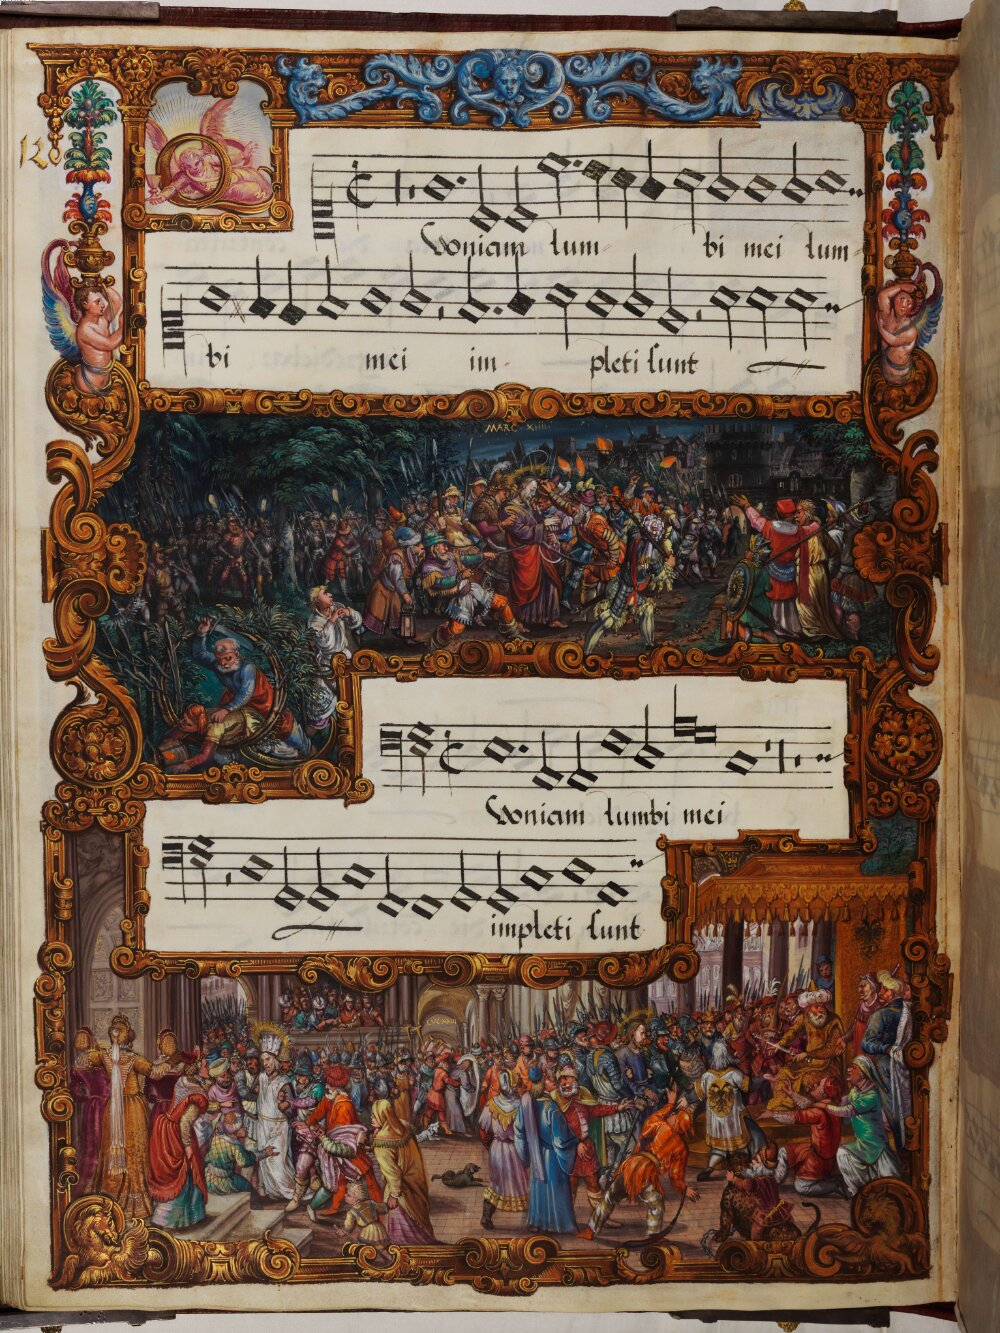 120
Quoniam lum bi mei lum-
bi mei im- pleti sunt
MARC XIIII
Quoniam lumbi mei
impleti sunt
LVC XXIII